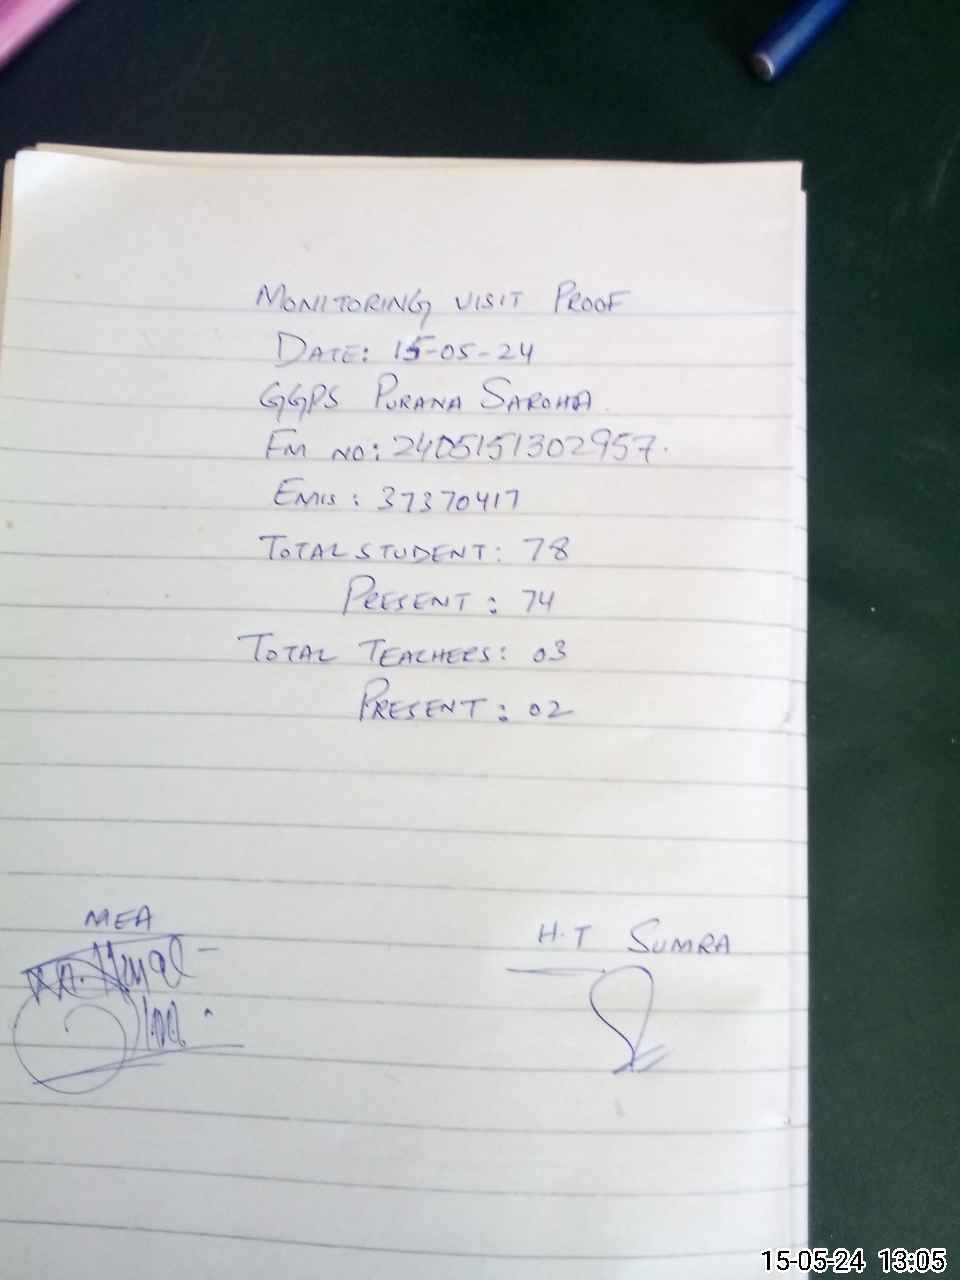 MONITORING VISIT PROOF
DATE: 15-05-24
GGPS PURANA SAROHA.
FM NO: 2405151302957.
EMIS: 37370417
TOTAL STUDENT: 78
PRESENT: 74
TOTAL TEACHERS: 03
PRESENT: 02
MEA
H.T SUMRA
15-05-24 13:05